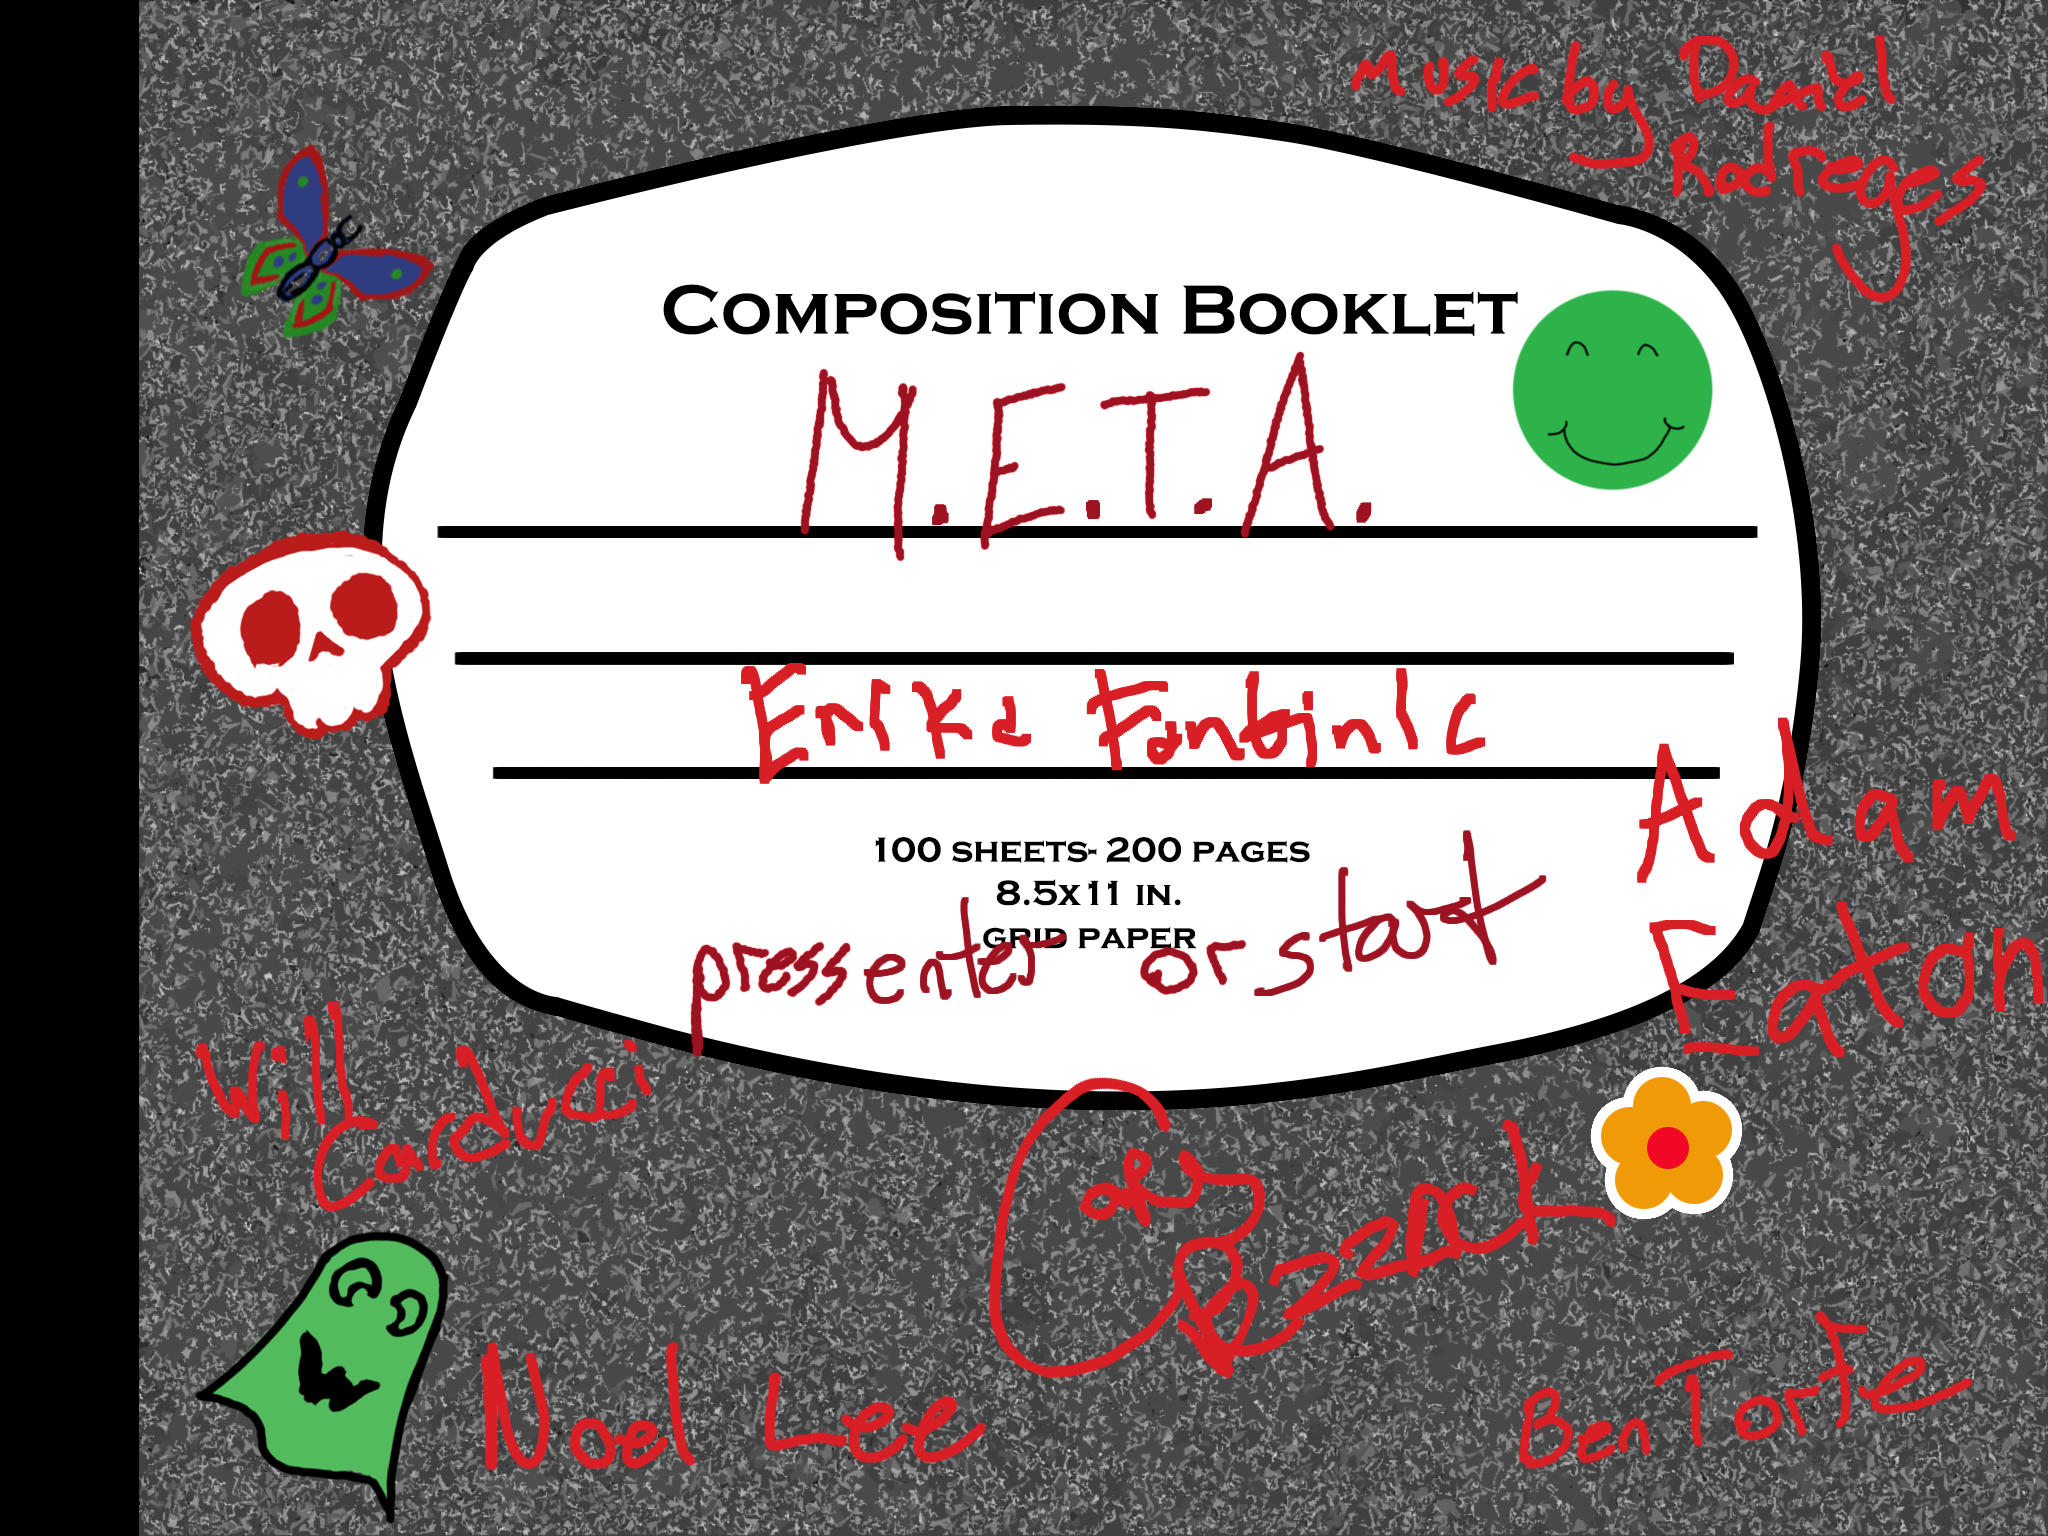 Music by Daniel
Rodreges
COMPOSITION BOOKLET
M.E.T.A.
Erika
Adam
Eaton
100 SHEETS- 200 PAGES
8.5X11 IN.
GRID PAPER
press enter or start
Will
Carducci
Noel Lee
Ben Torte